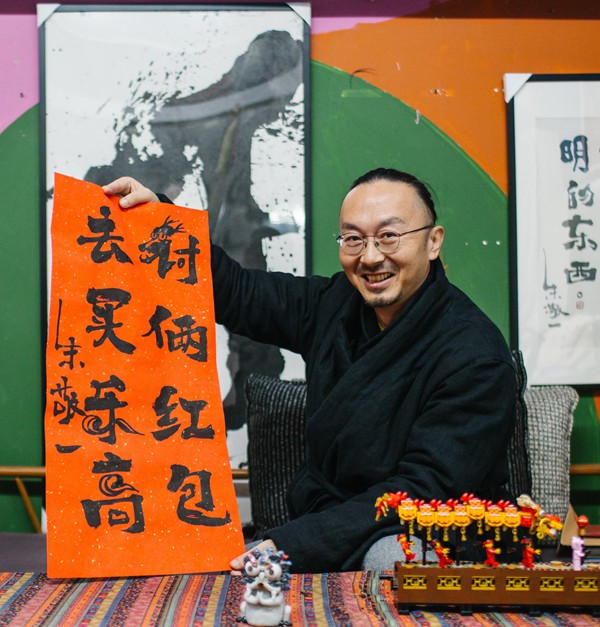 讨俩红包
去买乐高
朱敬一
明的东西。
朱敬一